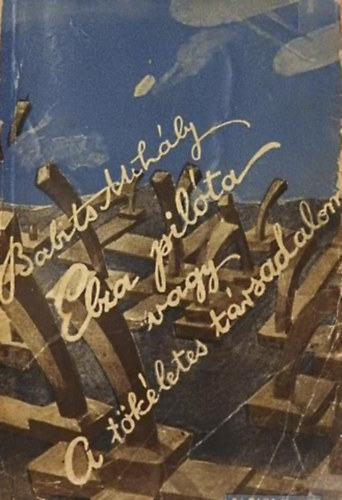 Babits Mihály
Elza pilóta
vagy
A tökéletes társadalom